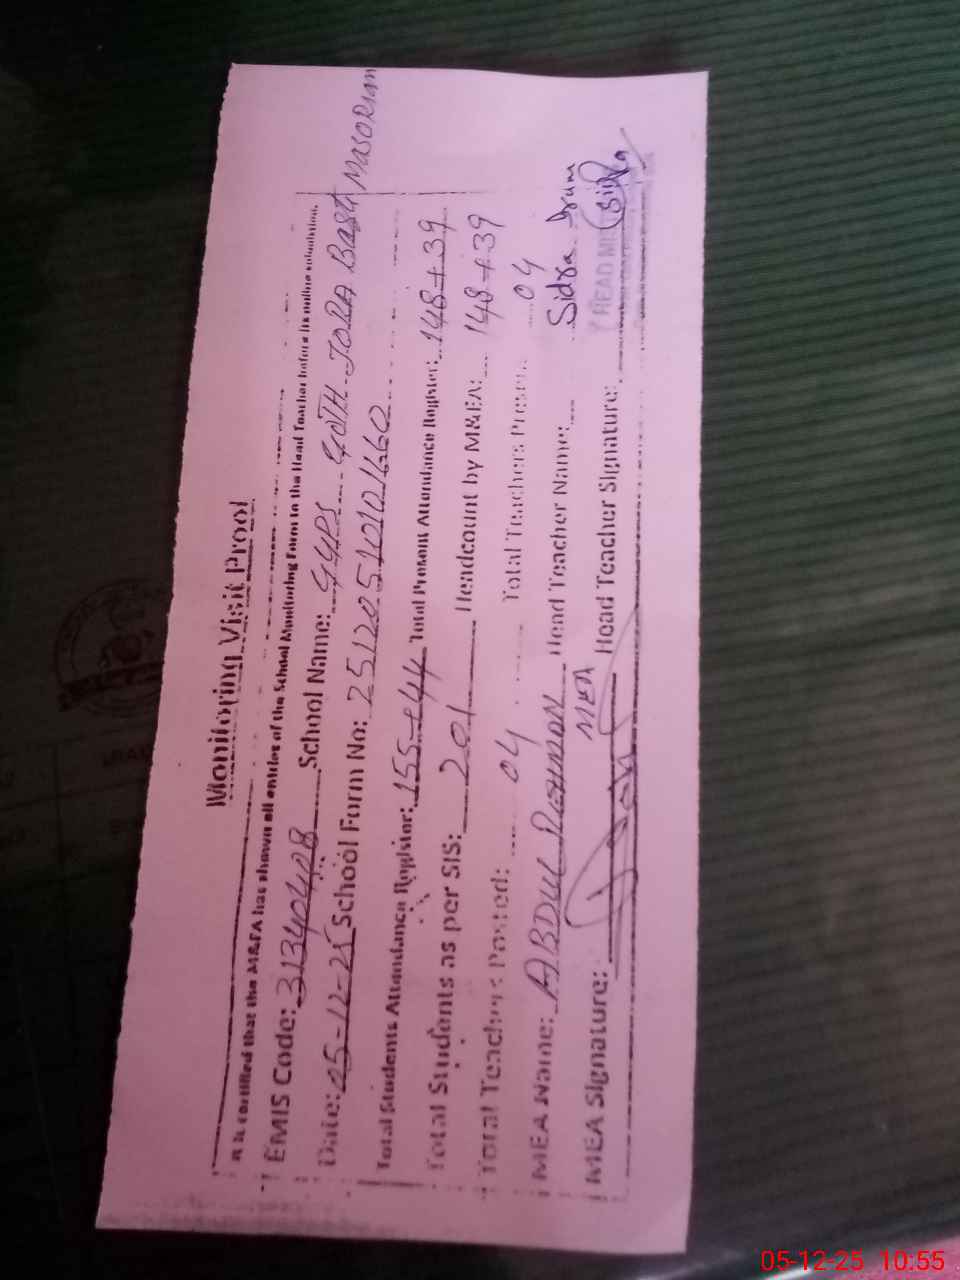 Monitoring Visit Proof
It is certified that the M&EA has shown all entries of the School Monitoring Form to the Head Teacher before its online submission.
EMIS Code: 31340428 School Name: GGPS GOTH JORA Basti Masorian
Date: 05-12-25 School Form No: 25120510101660
Total Students Attendance Register: 155+44 Total Present Attendance Register: 148+39
Total Students as per SIS: 201 Headcount by M&EA: 148+39
Total Teachers Posted: 04 Total Teachers Present: 04
MEA Name: ABDUL REHMAN Head Teacher Name: Sidra Irum
MEA
MEA Signature: Head Teacher Signature: (Sidra)
HEAD
05-12-25 10:55